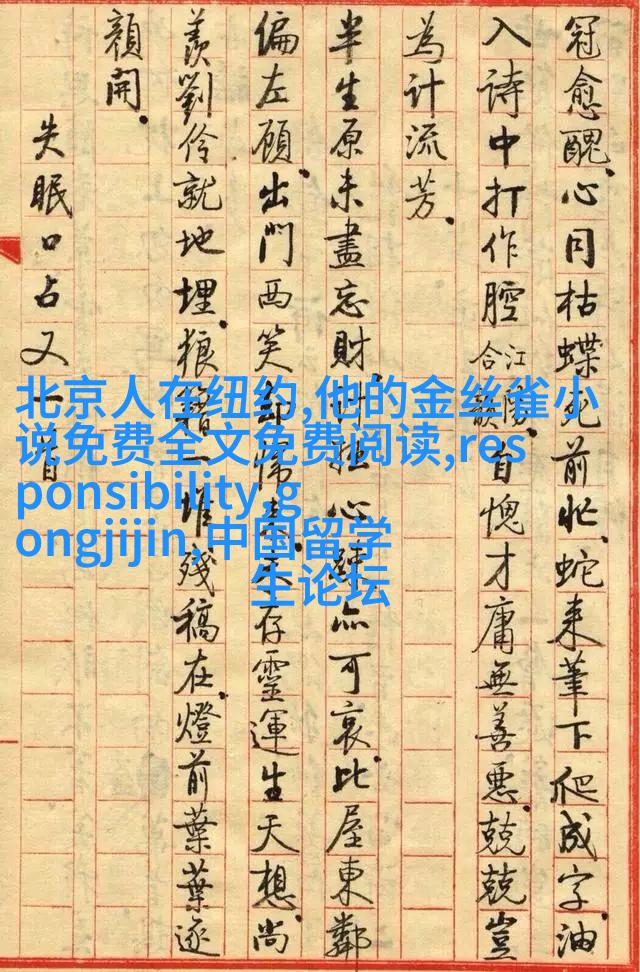 冠愈醜。心同枯蝶死前忙。蛇来筆下爬成字。油
入詩中打作腔江陽合韻。自愧才庸無善惡。兢兢豈
為計流芳。
半生原未盡忘財。心亦可哀。比屋東鄰
偏左顧。出門西笑却歸存靈運生天想。尚
羨劉伶就地埋。狼籍一堆殘稿在。燈前葉葉逐
顏開。
失眠口占又一首
北京人在纽约,他的金丝雀小
说免费全文免费阅读,res
ponsibility,g
ongjijin,中国留学
生论坛